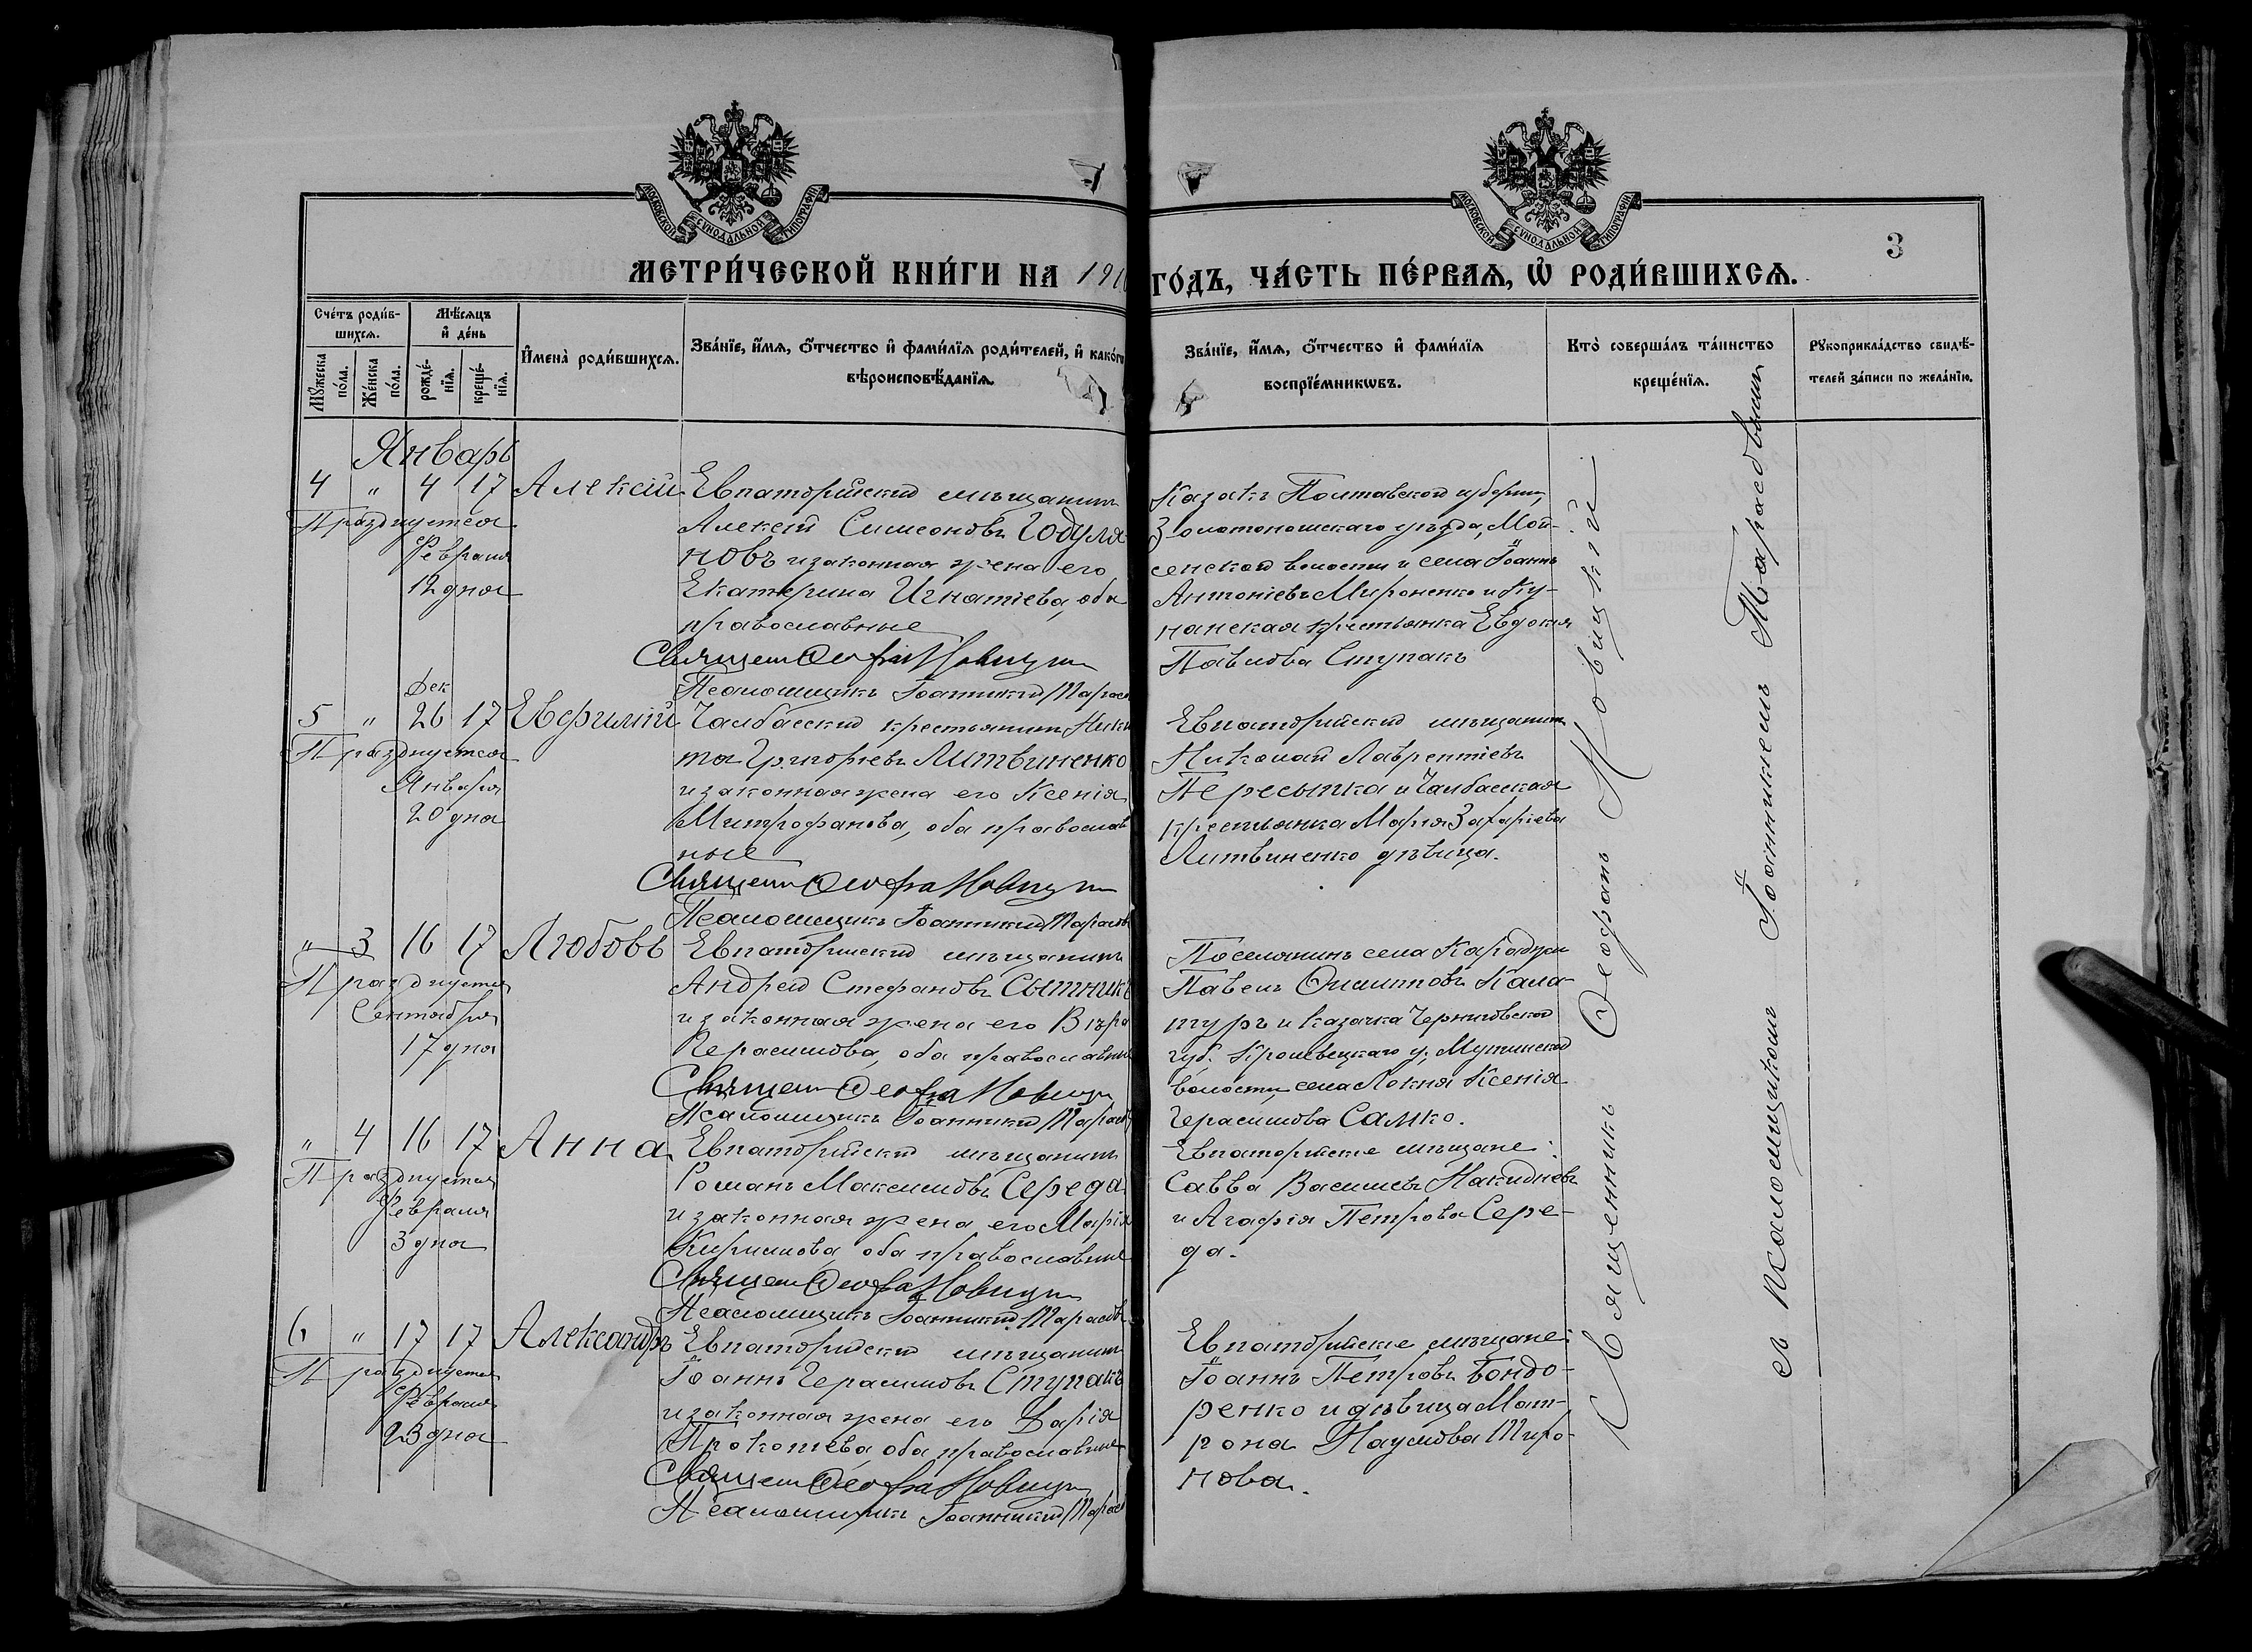 МОСКОВСКОЙ СѴНОДАЛЬНОЙ ТИПОГРАФІИ
МОСКОВСКОЙ СѴНОДАЛЬНОЙ ТИПОГРАФІИ
3
МЕТРИ́ЧЕСКОЙ КНИ́ГИ НА 191
ГО́ДЪ, ЧА́СТЬ ПЕ́РВАѦ, Ѡ҆ РОДИ́ВШИХСѦ.
Сче́тъ роди́в-
шихсѧ.
Мꙋ́жеска по́ла.
Же́нска по́ла.
Мѣ́сѧцъ
и҆ де́нь
рожде́-
нїѧ.
креще́-
нїѧ.
И҆мена̀ роди́вшихсѧ.
Зва́нїе, и҆́мѧ, ѻ҆́тчество и҆ фами́лїѧ роди́телей, и҆ како́гѡ
вѣроисповѣ́данїѧ.
Зва́нїе, и҆́мѧ, ѻ҆́тчество и҆ фами́лїѧ
воспрїе́мникѡвъ.
Кто̀ соверша́лъ та́инство
креще́нїѧ.
Рꙋкоприкла́дство свидѣ́-
телей за́писи по жела́нїю.
Январь
4 " 4 17 Алексій
Празднуется
Февраля
12 дня
Евпаторійскій мѣщанинъ
Алексѣй Симеоновъ Годуля-
новъ и законная жена его
Екатерина Игнатіева, оба
православные
Священ Ѳеофан Новицкій
Псаломщикъ Іоанникій Тарас
Казакъ Полтавской губерніи,
Золотоношскаго уѣзда, Мой-
сенской волости и села Іоаннъ
Антоніевъ Мироненко и Ку-
манская крестьянка Евдокія
Павлова Ступакъ
Дек
5 " 26 17 Евфимій
Празднуется
Января
20 дня
Чалбасскій крестьянинъ Ники
та Григорьевъ Литвиненко
и законная жена его Ксенія
Митрофанова, оба православ
ные
Священ Ѳеофан Новицкій
Псаломщикъ Іоанникій Тарасов
Евпаторійскій мѣщанинъ
Николай Лаврентіевъ
Пересыпка и Чалбасская
крестьянка Марія Захаріева
Литвиненко дѣвица.
" 3 16 17 Любовь
Празднуется
Сентября
17 дня
Евпаторійскій мѣщанинъ
Андрей Стефановъ Сытникъ
и законная жена его Вѣра
Герасимова, оба православные
Священ Ѳеофан Новицкій
Псаломщикъ Іоанникій Тарасов
Поселянинъ села
Павелъ Филипповъ Кала-
туръ и казачка Черниговской
губ. Кролевецкаго у, Мутинской
волости, села Локня Ксенія
Герасимова Самко.
" 4 16 17 Анна
Празднуется
Февраля
3 дня
Евпаторійскій мѣщанинъ
Романъ Максимовъ Середа
и законная жена его Марія
Кирилова, оба православные
Священ Ѳеофан Новицкій
Псаломщикъ Іоанникій Тарасов
Евпаторійскіе мѣщане:
Савва Васильевъ Накидневъ
и Агафія Петрова Сере-
да.
6 " 17 17 Александръ
Празднуется
Февраля
23 дня
Евпаторійскій мѣщанинъ
Іоаннъ Герасимовъ Ступакъ
и законная жена его Дарія
Прокопіева, оба православные
Священ Ѳеофан Новицкій
Псаломщикъ Іоанникій Тарас
Евпаторійскіе мѣщане:
Іоаннъ Петровъ Бондо-
ренко и дѣвица Мат-
рона Наумова Миро-
нова.
Священникъ Ѳеофанъ Новицкій
съ псаломщикомъ Іоанникіемъ Тарасовымъ